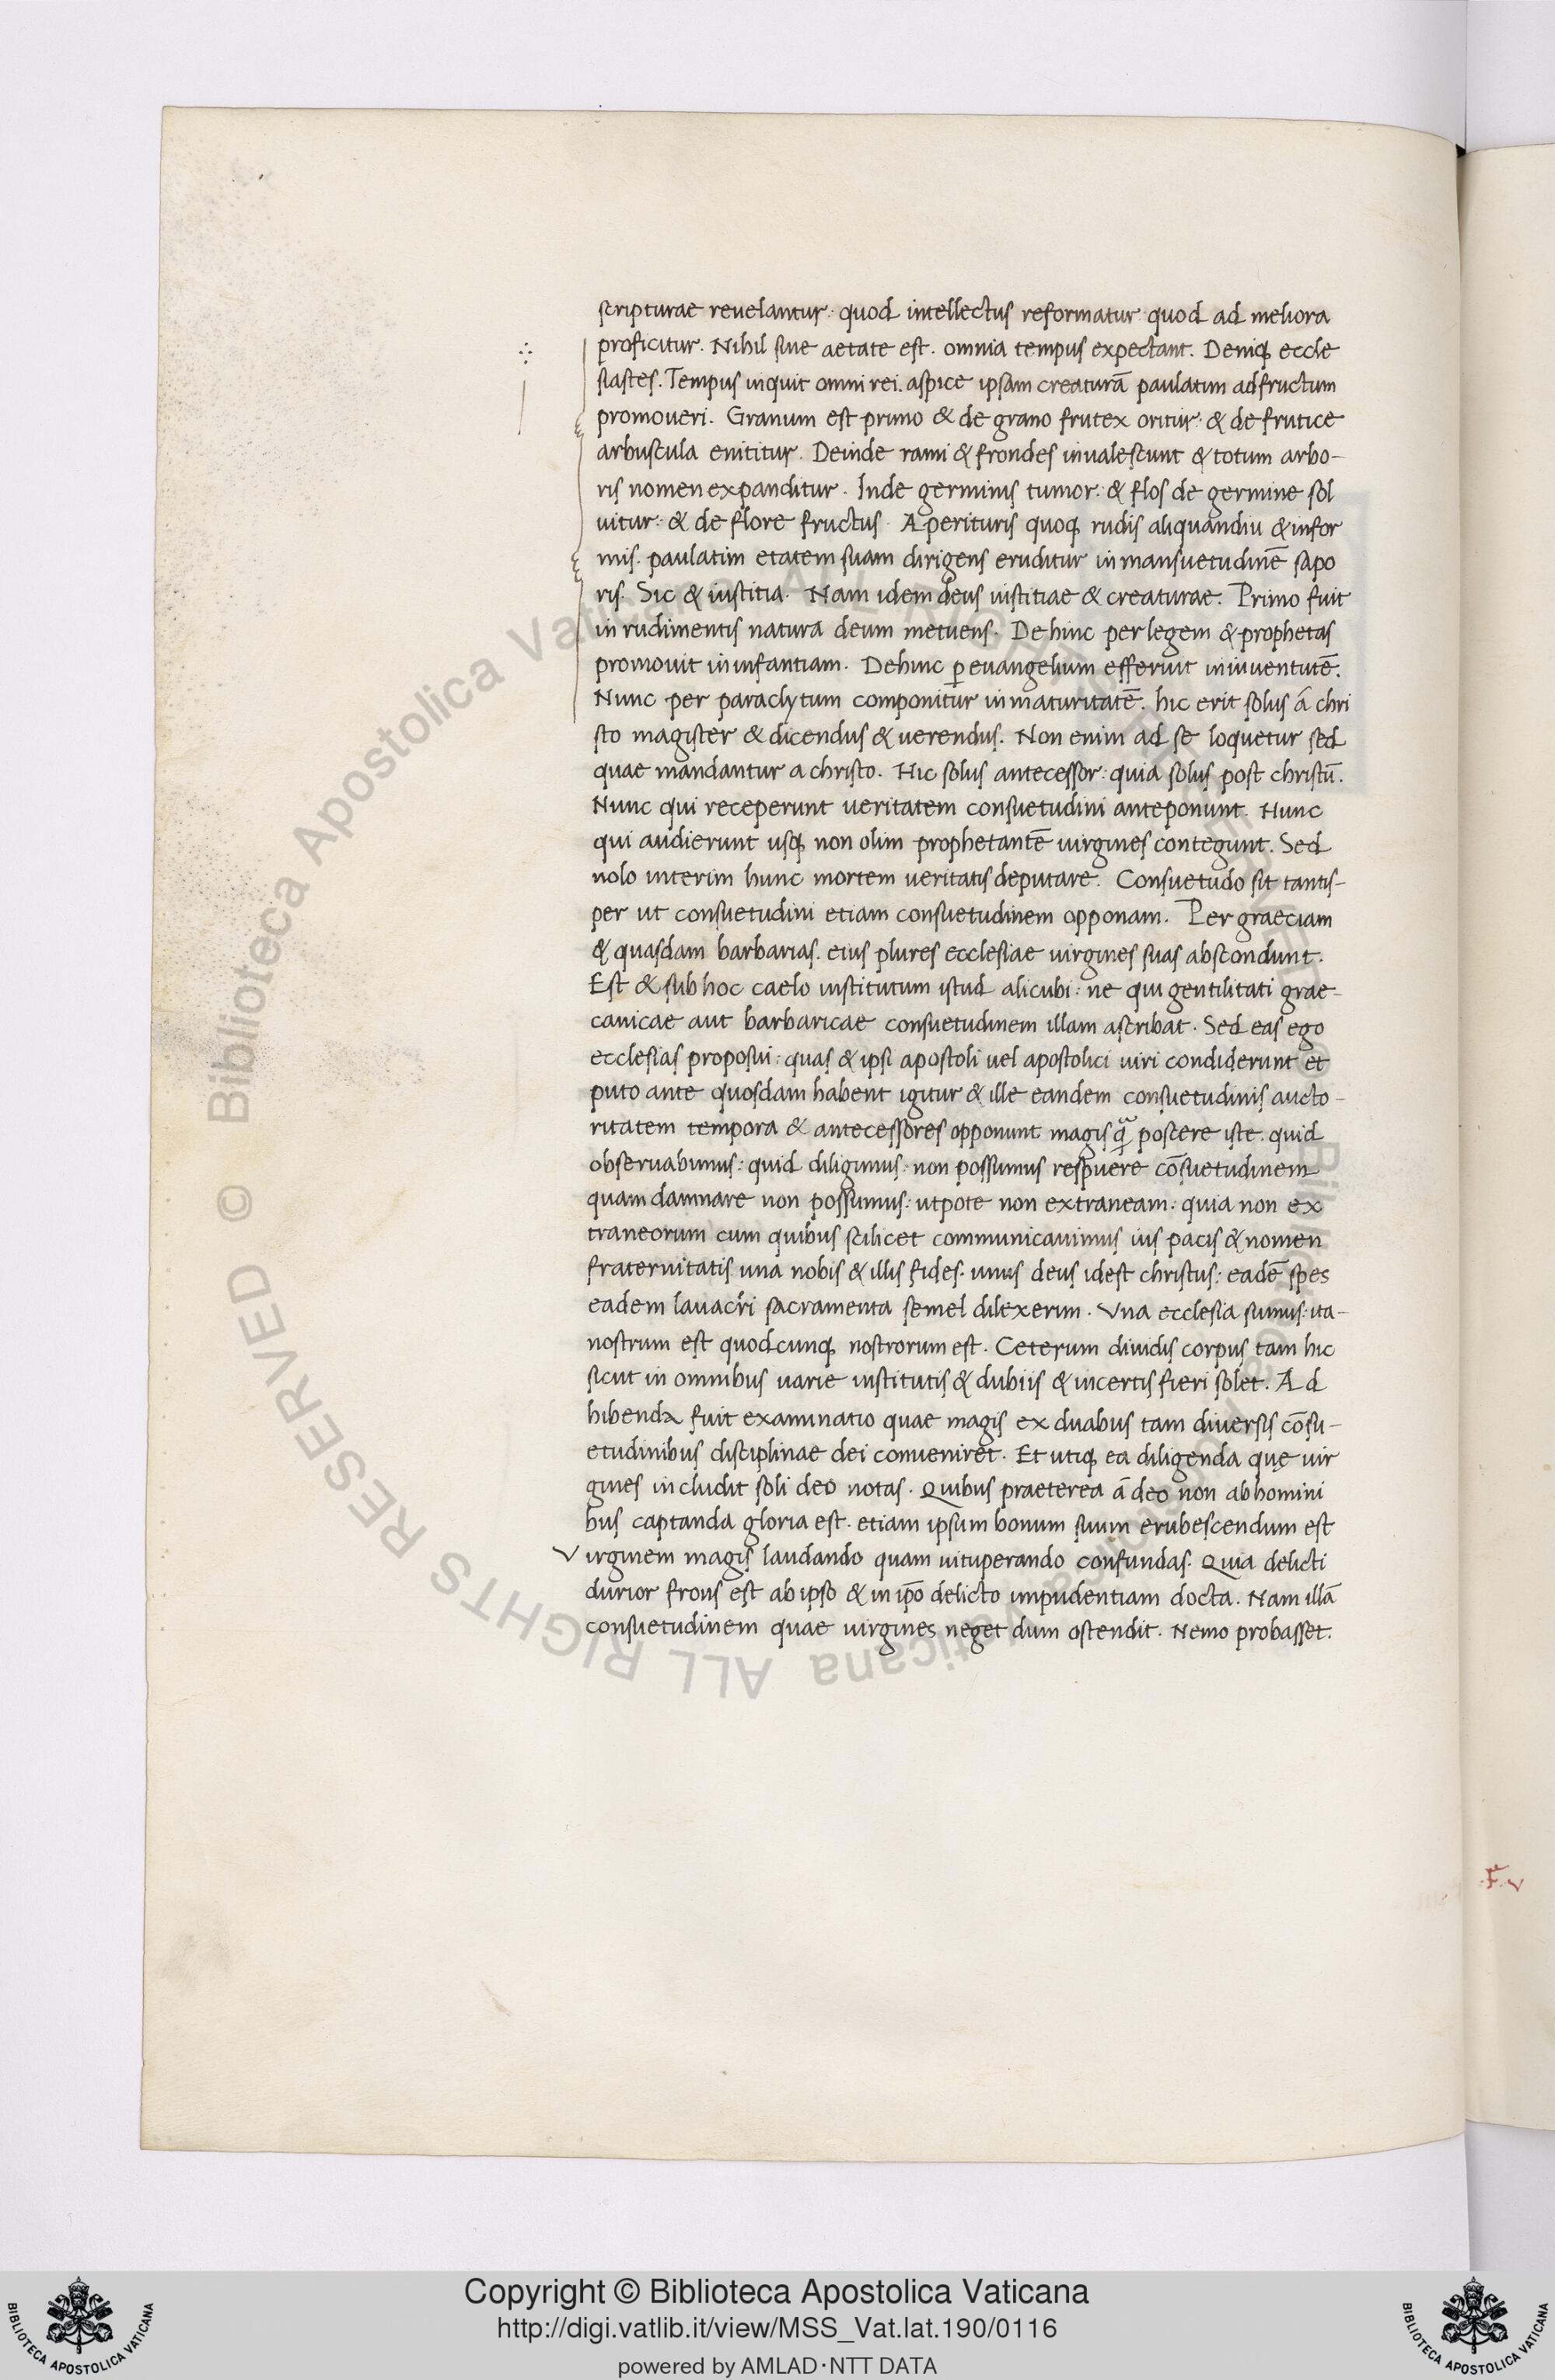 scripturae reuelantur: quod intellectus reformatur quod ad meliora
proficitur. Nihil sine aetate est. omnia tempus expectant. Deniq; eccle
siastes. Tempus inquit omni rei. aspice ipsam creaturā paulatim ad fructum
promoueri. Granum est primo & de grano frutex oritur: & de frutice
arbuscula enititur. Deinde rami & frondes inualescunt & totum arbo-
ris nomen expanditur. Inde germinis tumor: & flos de germine sol
uitur: & de flore fructus. Aperituris quoq; rudis aliquandiu & infor
mis. paulatim etatem suam dirigens eruditur in mansuetudinē sapo
ris. Sic & iustitia. Nam idem deus iustitiae & creaturae. Primo fuit
in rudimentis natura deum metuens. Dehinc per legem & prophetas
promouit in infantiam. Dehinc ꝑ euangelium efferuit in iuuentutē.
Nunc per paraclytum componitur in maturitatē. hic erit solus á chri
sto magister & dicendus & uerendus. Non enim ad se loquetur sed
quae mandantur a christo. Hic solus antecessor: quia solus post christū.
Nunc qui receperunt ueritatem consuetudini anteponunt. Nunc
qui audierunt usq; non olim prophetantē uirgines contegunt. Sed
nolo interim hunc mortem ueritatis deputare. Consuetudo sit tantis-
per ut consuetudini etiam consuetudinem opponam. Per graeciam
& quasdam barbarias. eius plures ecclesiae uirgines suas abscondunt.
Est & sub hoc caelo institutum istud alicubi: ne qui gentilitati grae-
canicae aut barbaricae consuetudinem illam ascribat. Sed eas ego
ecclesias proposui: quas & ipsi apostoli uel apostolici uiri condiderunt et
puto ante quosdam habent igitur & ille eandem consuetudinis aucto-
ritatem tempora & antecessores opponunt magis q̈ postere iste. quid
obseruabimus: quid diligimus: non possumus respuere cōsuetudinem
quam damnare non possumus: utpote non extraneam: quia non ex
traneorum cum quibus scilicet communicauimus ius pacis & nomen
fraternitatis una nobis & illis fides. unus deus idest christus: eadē spes
eadem lauachri sacramenta semel dilexerim. Vna ecclesia sumus: ita-
nostrum est quodcunq; nostrorum est. Ceterum diuidis corpus tam hic
sicut in omnibus uarie institutis & dubiis & incertis fieri solet. Ad
hibenda fuit examinatio quae magis ex duabus tam diuersis cōsu-
etudinibus disciplinae dei conueniret. Et utiq; ea diligenda quę uir
gines includit soli deo notas. Quibus praeterea á deo non ab homini
bus captanda gloria est. etiam ipsum bonum suum erubescendum est
Virginem magis laudando quam uituperando confundas. Quia delicti
durior frons est ab ipso & in ip̄o delicto impudentiam docta. Nam illā
consuetudinem quae uirgines neget dum ostendit. Nemo probasset.
F. v
© Biblioteca Apostolica Vaticana ALL RIGHTS RESERVED
© Biblioteca Apostolica Vaticana ALL RIGHTS RESERVED
Copyright © Biblioteca Apostolica Vaticana
http://digi.vatlib.it/view/MSS_Vat.lat.190/0116
powered by AMLAD·NTT DATA
BIBLIOTECA APOSTOLICA VATICANA
BIBLIOTECA APOSTOLICA VATICANA